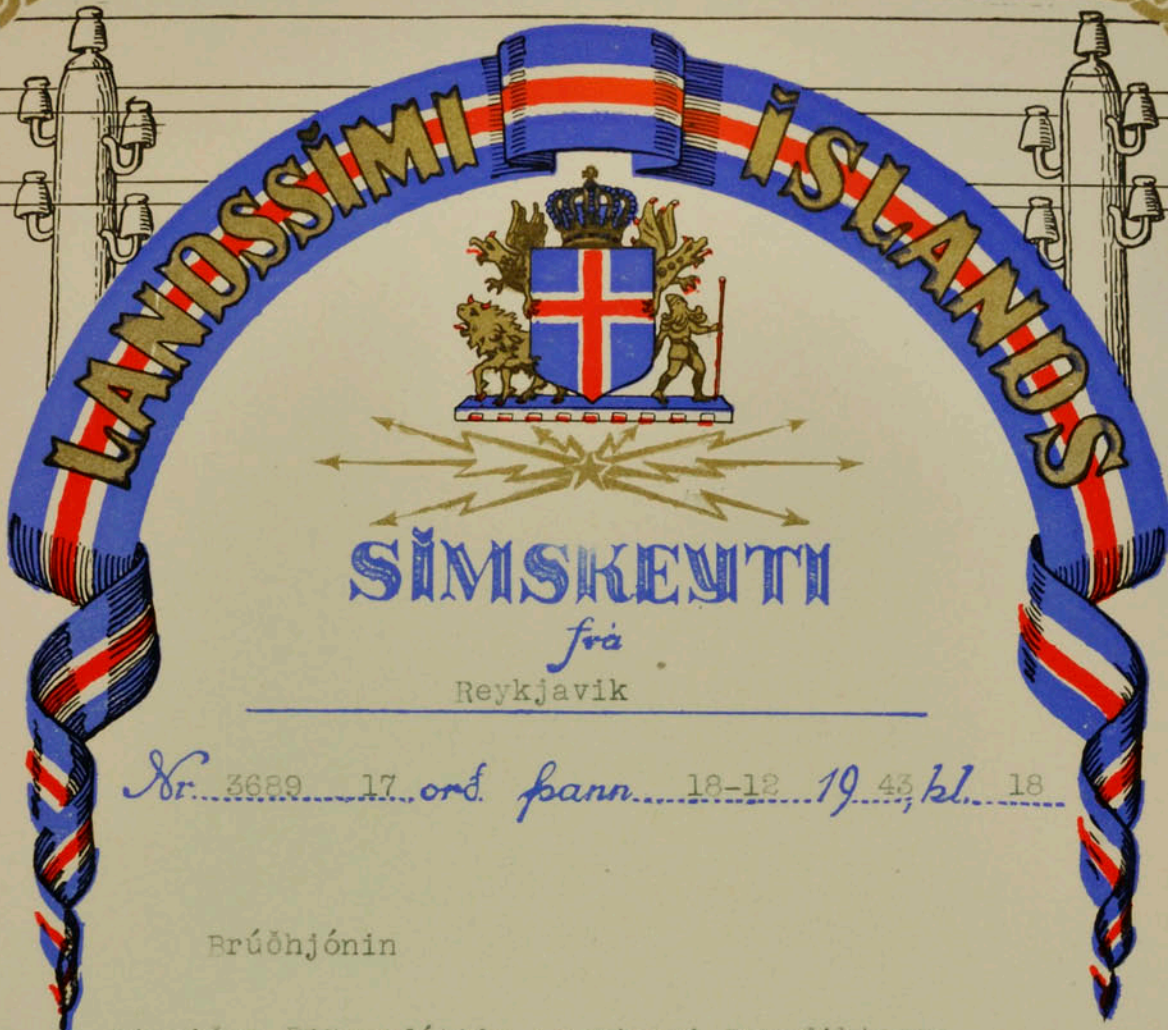 LANDSSÍMI ÍSLANDS
SÍMSKEYTI
frá
Reykjavik
Nr. 3689 17 orð þann 18-12 19 43, kl. 18
Brúðhjónin